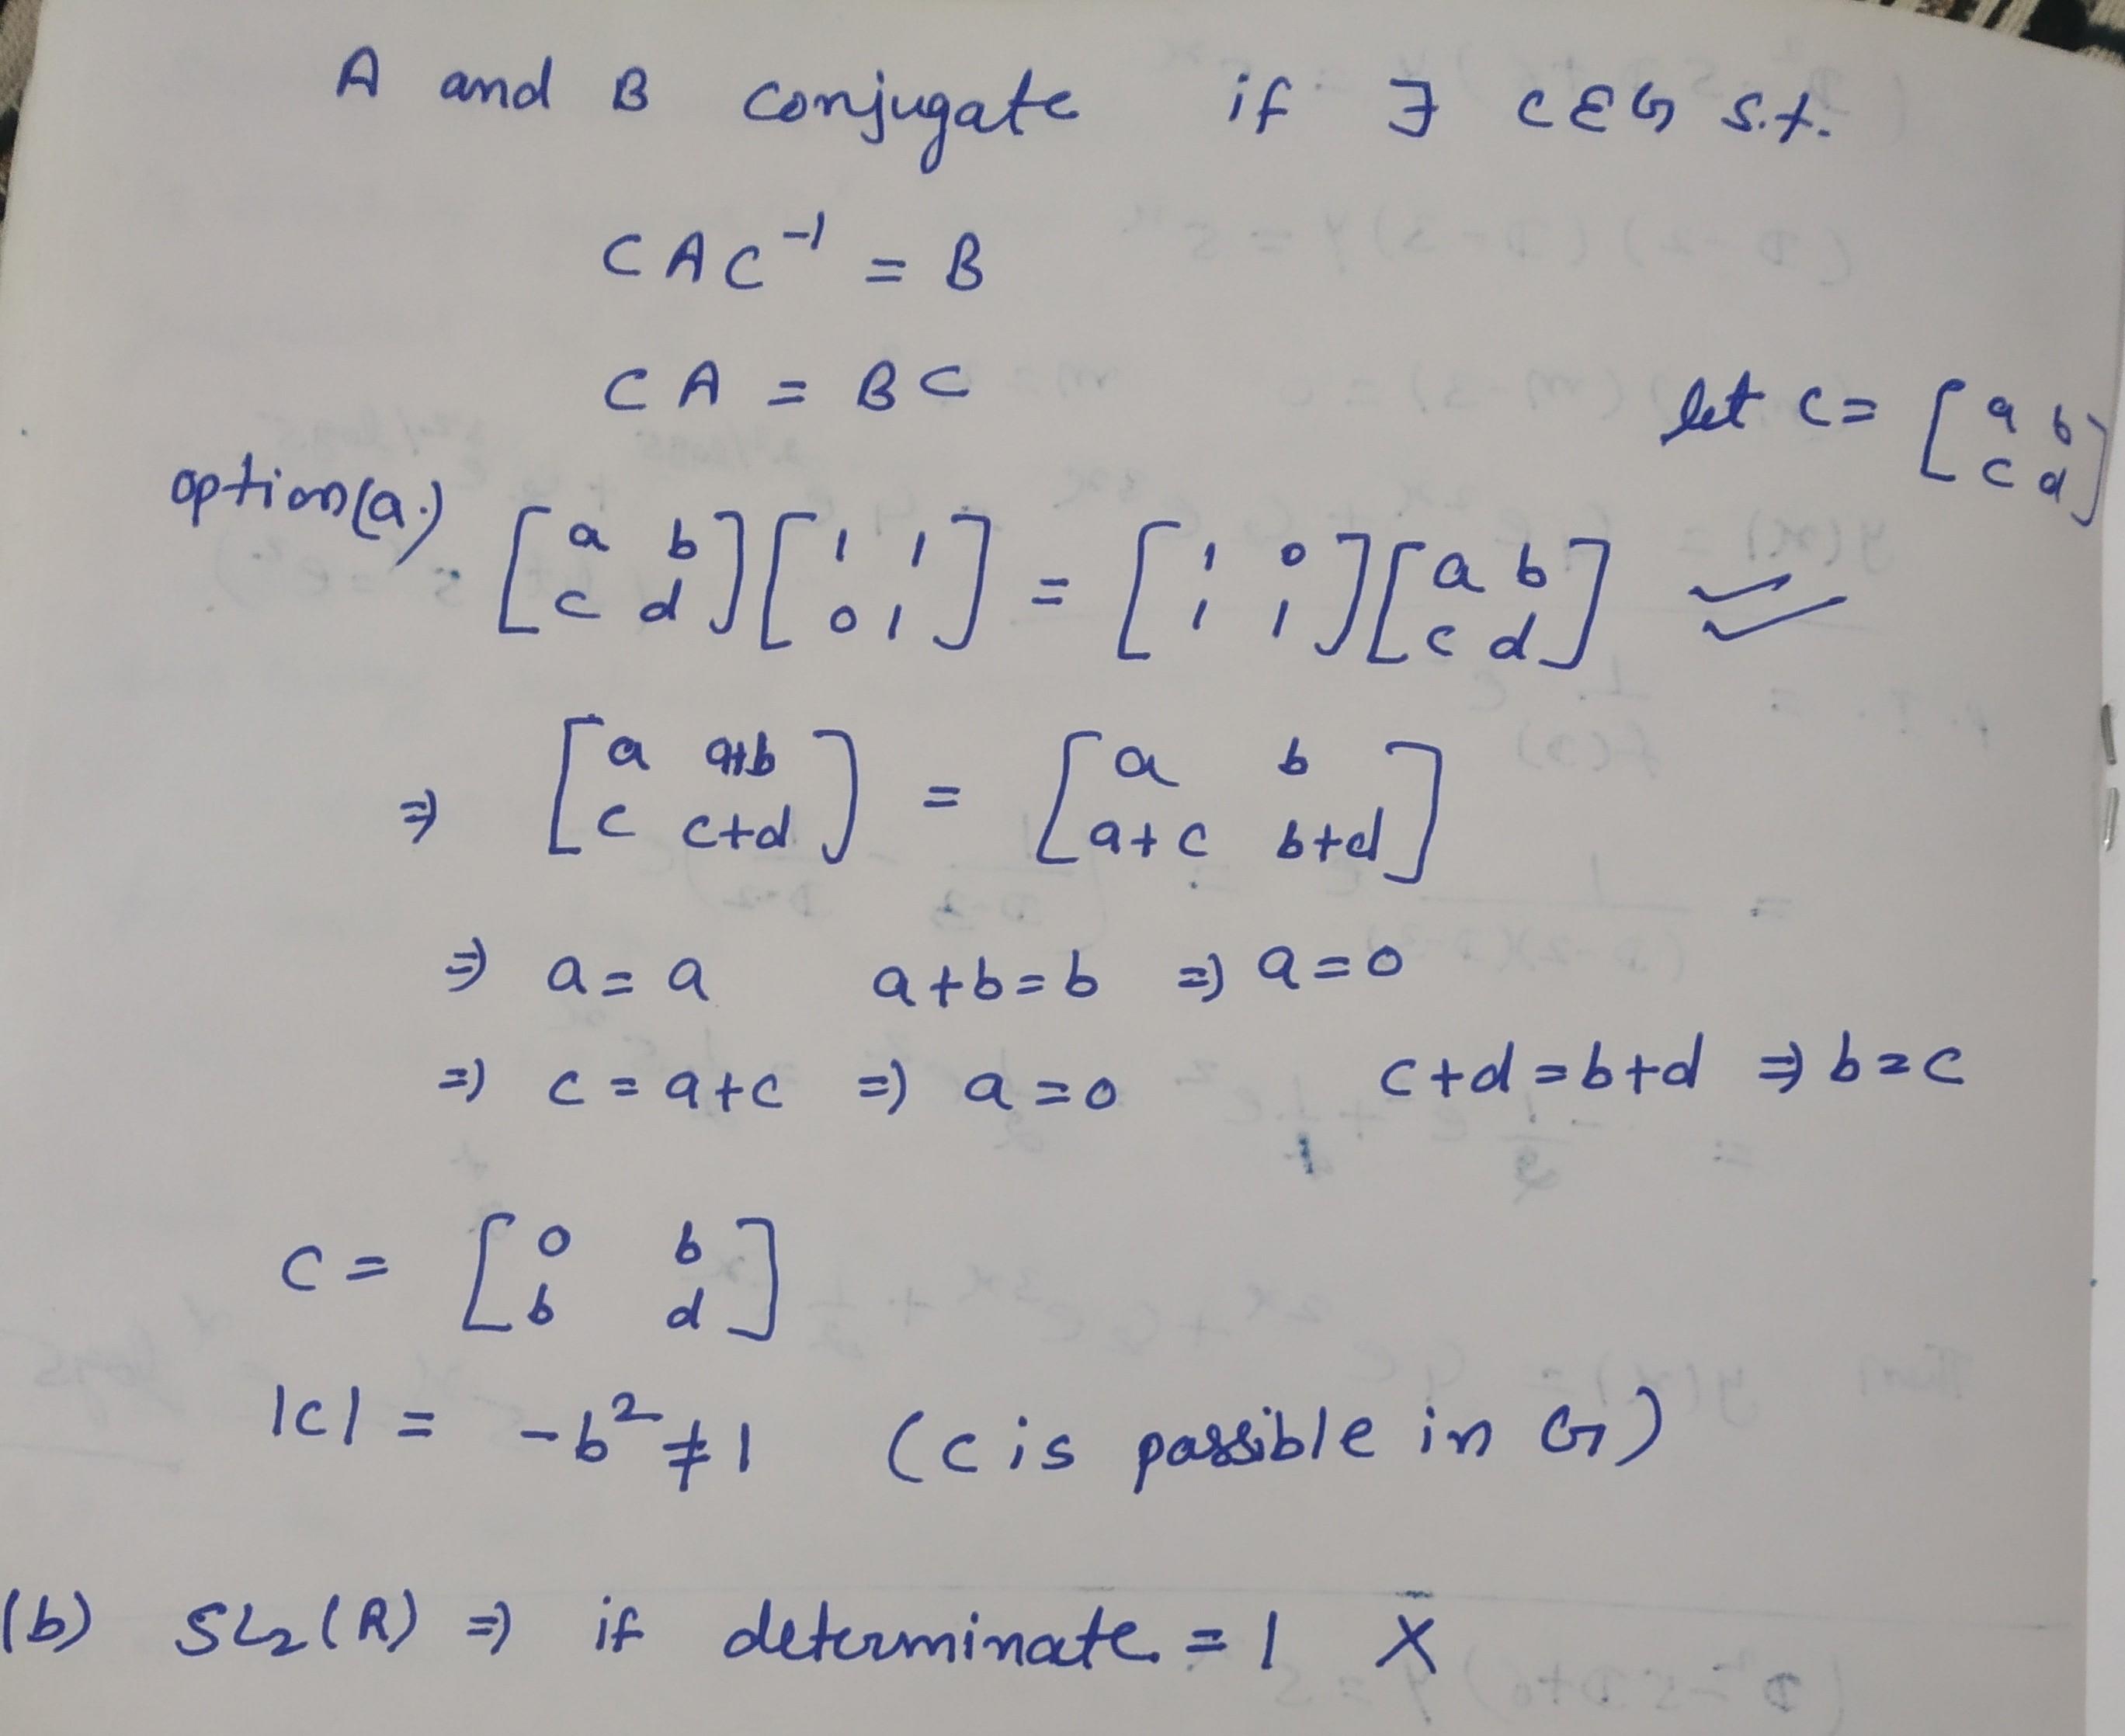 A and B conjugate if ∃ C ∈ G s.t.
C A C⁻¹ = B
C A = B C
let C = [a b; c d]
option (a.) [a b; c d] [1 1; 0 1] = [1 0; 1 1] [a b; c d]
⇒ [a a+b; c c+d] = [a b; a+c b+d]
⇒ a = a a+b = b ⇒ a = 0
⇒ c = a+c ⇒ a = 0 c+d = b+d ⇒ b = c
C = [0 b; b d]
|C| = -b² ≠ 1 (C is passible in G)
(b) SL₂(R) ⇒ if determinate = 1 X